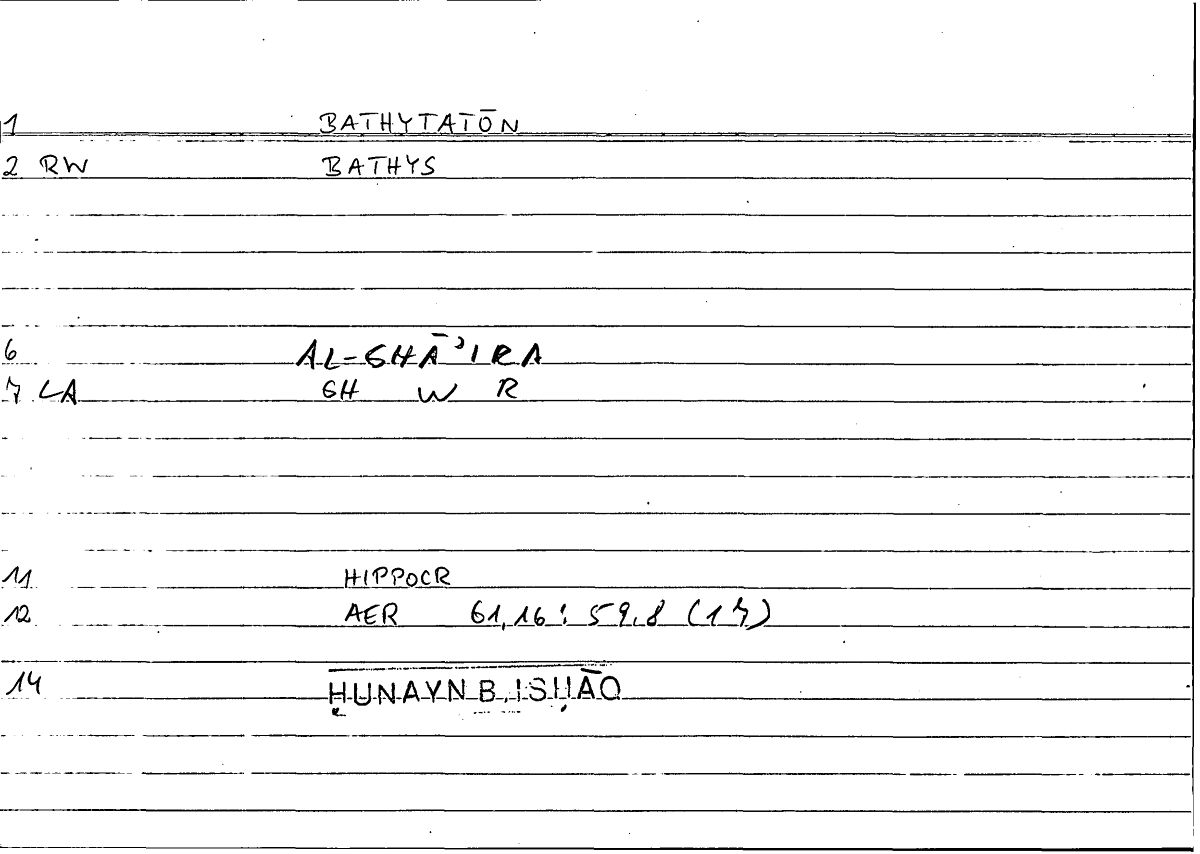 1 BATHYTATŌN
2 RW BATHYS
6 AL-GHĀʾIRA
7 LA GH W R
11 HIPPOCR
12 AER 61,16: 59,8 (17)
14 ḤUNAYN B. ISḤĀQ